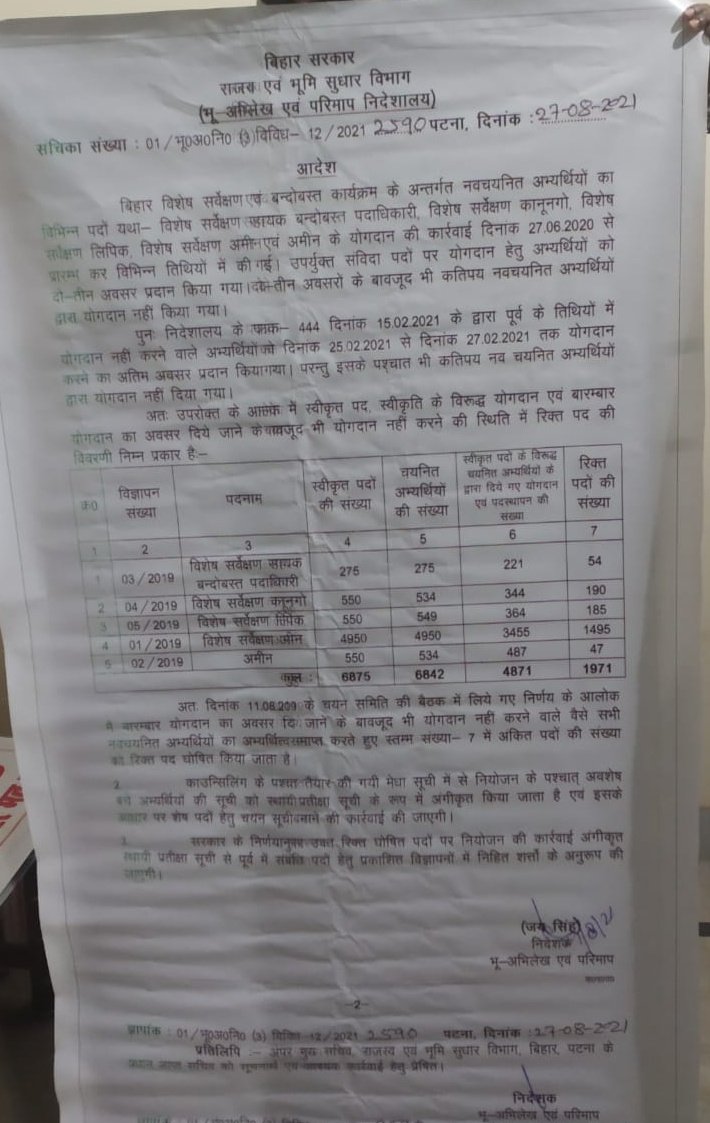 बिहार सरकार
राजस्व एवं भूमि सुधार विभाग
(भू-अभिलेख एवं परिमाप निदेशालय)
सचिका संख्या : 01/भू0अ0नि0 (3)विविध- 12/2021 2590 पटना, दिनांक : 27-08-2021
आदेश
बिहार विशेष सर्वेक्षण एवं बन्दोबस्त कार्यक्रम के अन्तर्गत नवचयनित अभ्यर्थियों का
विभिन्न पदों यथा- विशेष सर्वेक्षण सहायक बन्दोबस्त पदाधिकारी, विशेष सर्वेक्षण कानूनगो, विशेष
सर्वेक्षण लिपिक, विशेष सर्वेक्षण अमीन एवं अमीन के योगदान की कार्रवाई दिनांक 27.06.2020 से
प्रारम्भ कर विभिन्न तिथियों में की गई। उपर्युक्त संविदा पदों पर योगदान हेतु अभ्यर्थियों को
दो-तीन अवसर प्रदान किया गया। दो-तीन अवसरों के बावजूद भी कतिपय नवचयनित अभ्यर्थियों
द्वारा योगदान नहीं किया गया।
पुनः निदेशालय के पत्रांक- 444 दिनांक 15.02.2021 के द्वारा पूर्व के तिथियों में
योगदान नहीं करने वाले अभ्यर्थियों को दिनांक 25.02.2021 से दिनांक 27.02.2021 तक योगदान
करने का अंतिम अवसर प्रदान किया गया। परन्तु इसके पश्चात भी कतिपय नव चयनित अभ्यर्थियों
द्वारा योगदान नहीं दिया गया।
अतः उपरोक्त के आलोक में स्वीकृत पद, स्वीकृति के विरूद्ध योगदान एवं बारम्बार
योगदान का अवसर दिये जाने के बावजूद भी योगदान नहीं करने की स्थिति में रिक्त पद की
विवरणी निम्न प्रकार है:-
क्र0 विज्ञापन संख्या पदनाम स्वीकृत पदों की संख्या चयनित अभ्यर्थियों की संख्या स्वीकृत पदों के विरूद्ध चयनित अभ्यर्थियों के द्वारा दिये गए योगदान एवं पदस्थापन की संख्या रिक्त पदों की संख्या
1 2 3 4 5 6 7
1 03/2019 विशेष सर्वेक्षण सहायक बन्दोबस्त पदाधिकारी 275 275 221 54
2 04/2019 विशेष सर्वेक्षण कानूनगो 550 534 344 190
3 05/2019 विशेष सर्वेक्षण लिपिक 550 549 364 185
4 01/2019 विशेष सर्वेक्षण अमीन 4950 4950 3455 1495
5 02/2019 अमीन 550 534 487 47
कुल : 6875 6842 4871 1971
अतः दिनांक 11.08.209 के चयन समिति की बैठक में लिये गए निर्णय के आलोक
में बारम्बार योगदान का अवसर दिए जाने के बावजूद भी योगदान नहीं करने वाले वैसे सभी
नवचयनित अभ्यर्थियों का अभ्यर्थित्व समाप्त करते हुए स्तम्भ संख्या- 7 में अंकित पदों की संख्या
को रिक्त पद घोषित किया जाता है।
2. काउन्सिलिंग के पश्चात तैयार की गयी मेधा सूची में से नियोजन के पश्चात् अवशेष
बचे अभ्यर्थियों की सूची को स्थायी प्रतीक्षा सूची के रूप में अंगीकृत किया जाता है एवं इसके
आधार पर शेष पदों हेतु चयन सूची बनाने की कार्रवाई की जाएगी।
3. सरकार के निर्णयानुसार उक्त रिक्त घोषित पदों पर नियोजन की कार्रवाई अंगीकृत
स्थायी प्रतीक्षा सूची से पूर्व में संबंधित पदों हेतु प्रकाशित विज्ञापनों में निहित शर्तों के अनुरूप की
जाएगी।
(जय सिंह)
निदेशक
भू-अभिलेख एवं परिमाप
-2-
ज्ञापांक : 01/भू0अ0नि0 (3) विविध 12/2021 2590 पटना, दिनांक :27-08-2021
प्रतिलिपि :- अपर मुख्य सचिव, राजस्व एवं भूमि सुधार विभाग, बिहार, पटना के
सचिव को सूचनार्थ एवं आवश्यक कार्रवाई हेतु प्रेषित।
निदेशक
भू-अभिलेख एवं परिमाप